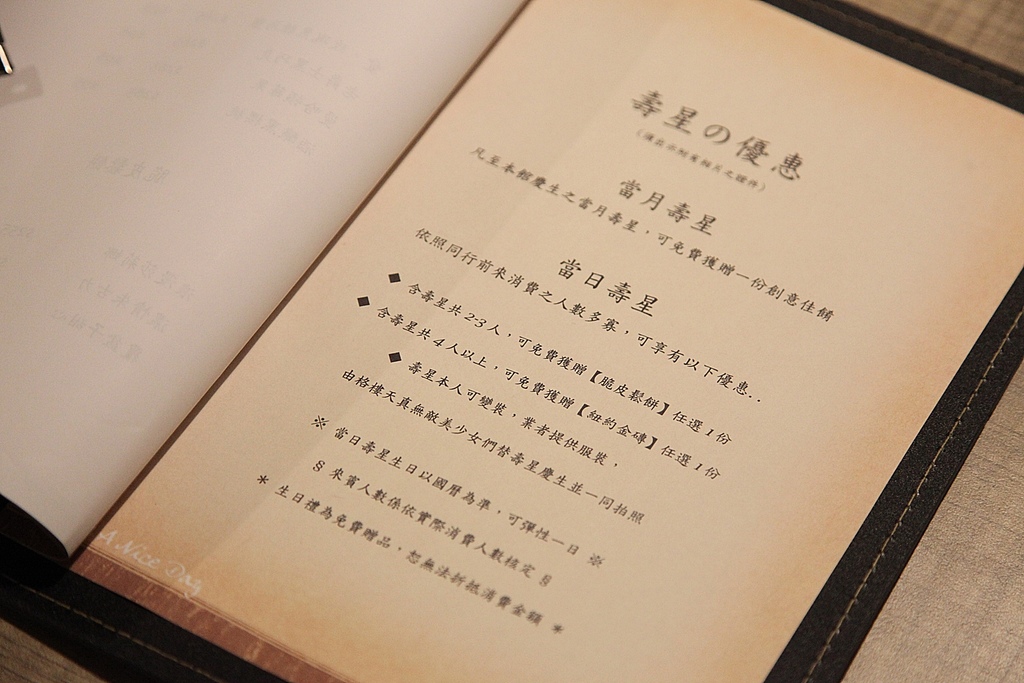 壽星の優惠
(須出示附有相片之證件)
當月壽星
凡至本館慶生之當月壽星，可免費獲贈一份創意佳餚
當日壽星
依照同行前來消費之人數多寡，可享有以下優惠..
◆ 含壽星共2-3人，可免費獲贈【脆皮鬆餅】任選1份
◆ 含壽星共4人以上，可免費獲贈【紐約金磚】任選1份
◆ 壽星本人可變裝，業者提供服裝，
由格樓天真無敵美少女們替壽星慶生並一同拍照
※ 當日壽星生日以國曆為準，可彈性一日 ※
§ 來賓人數係依實際消費人數核定 §
* 生日禮為免費贈品，恕無法折抵消費金額 *
A Nice Day